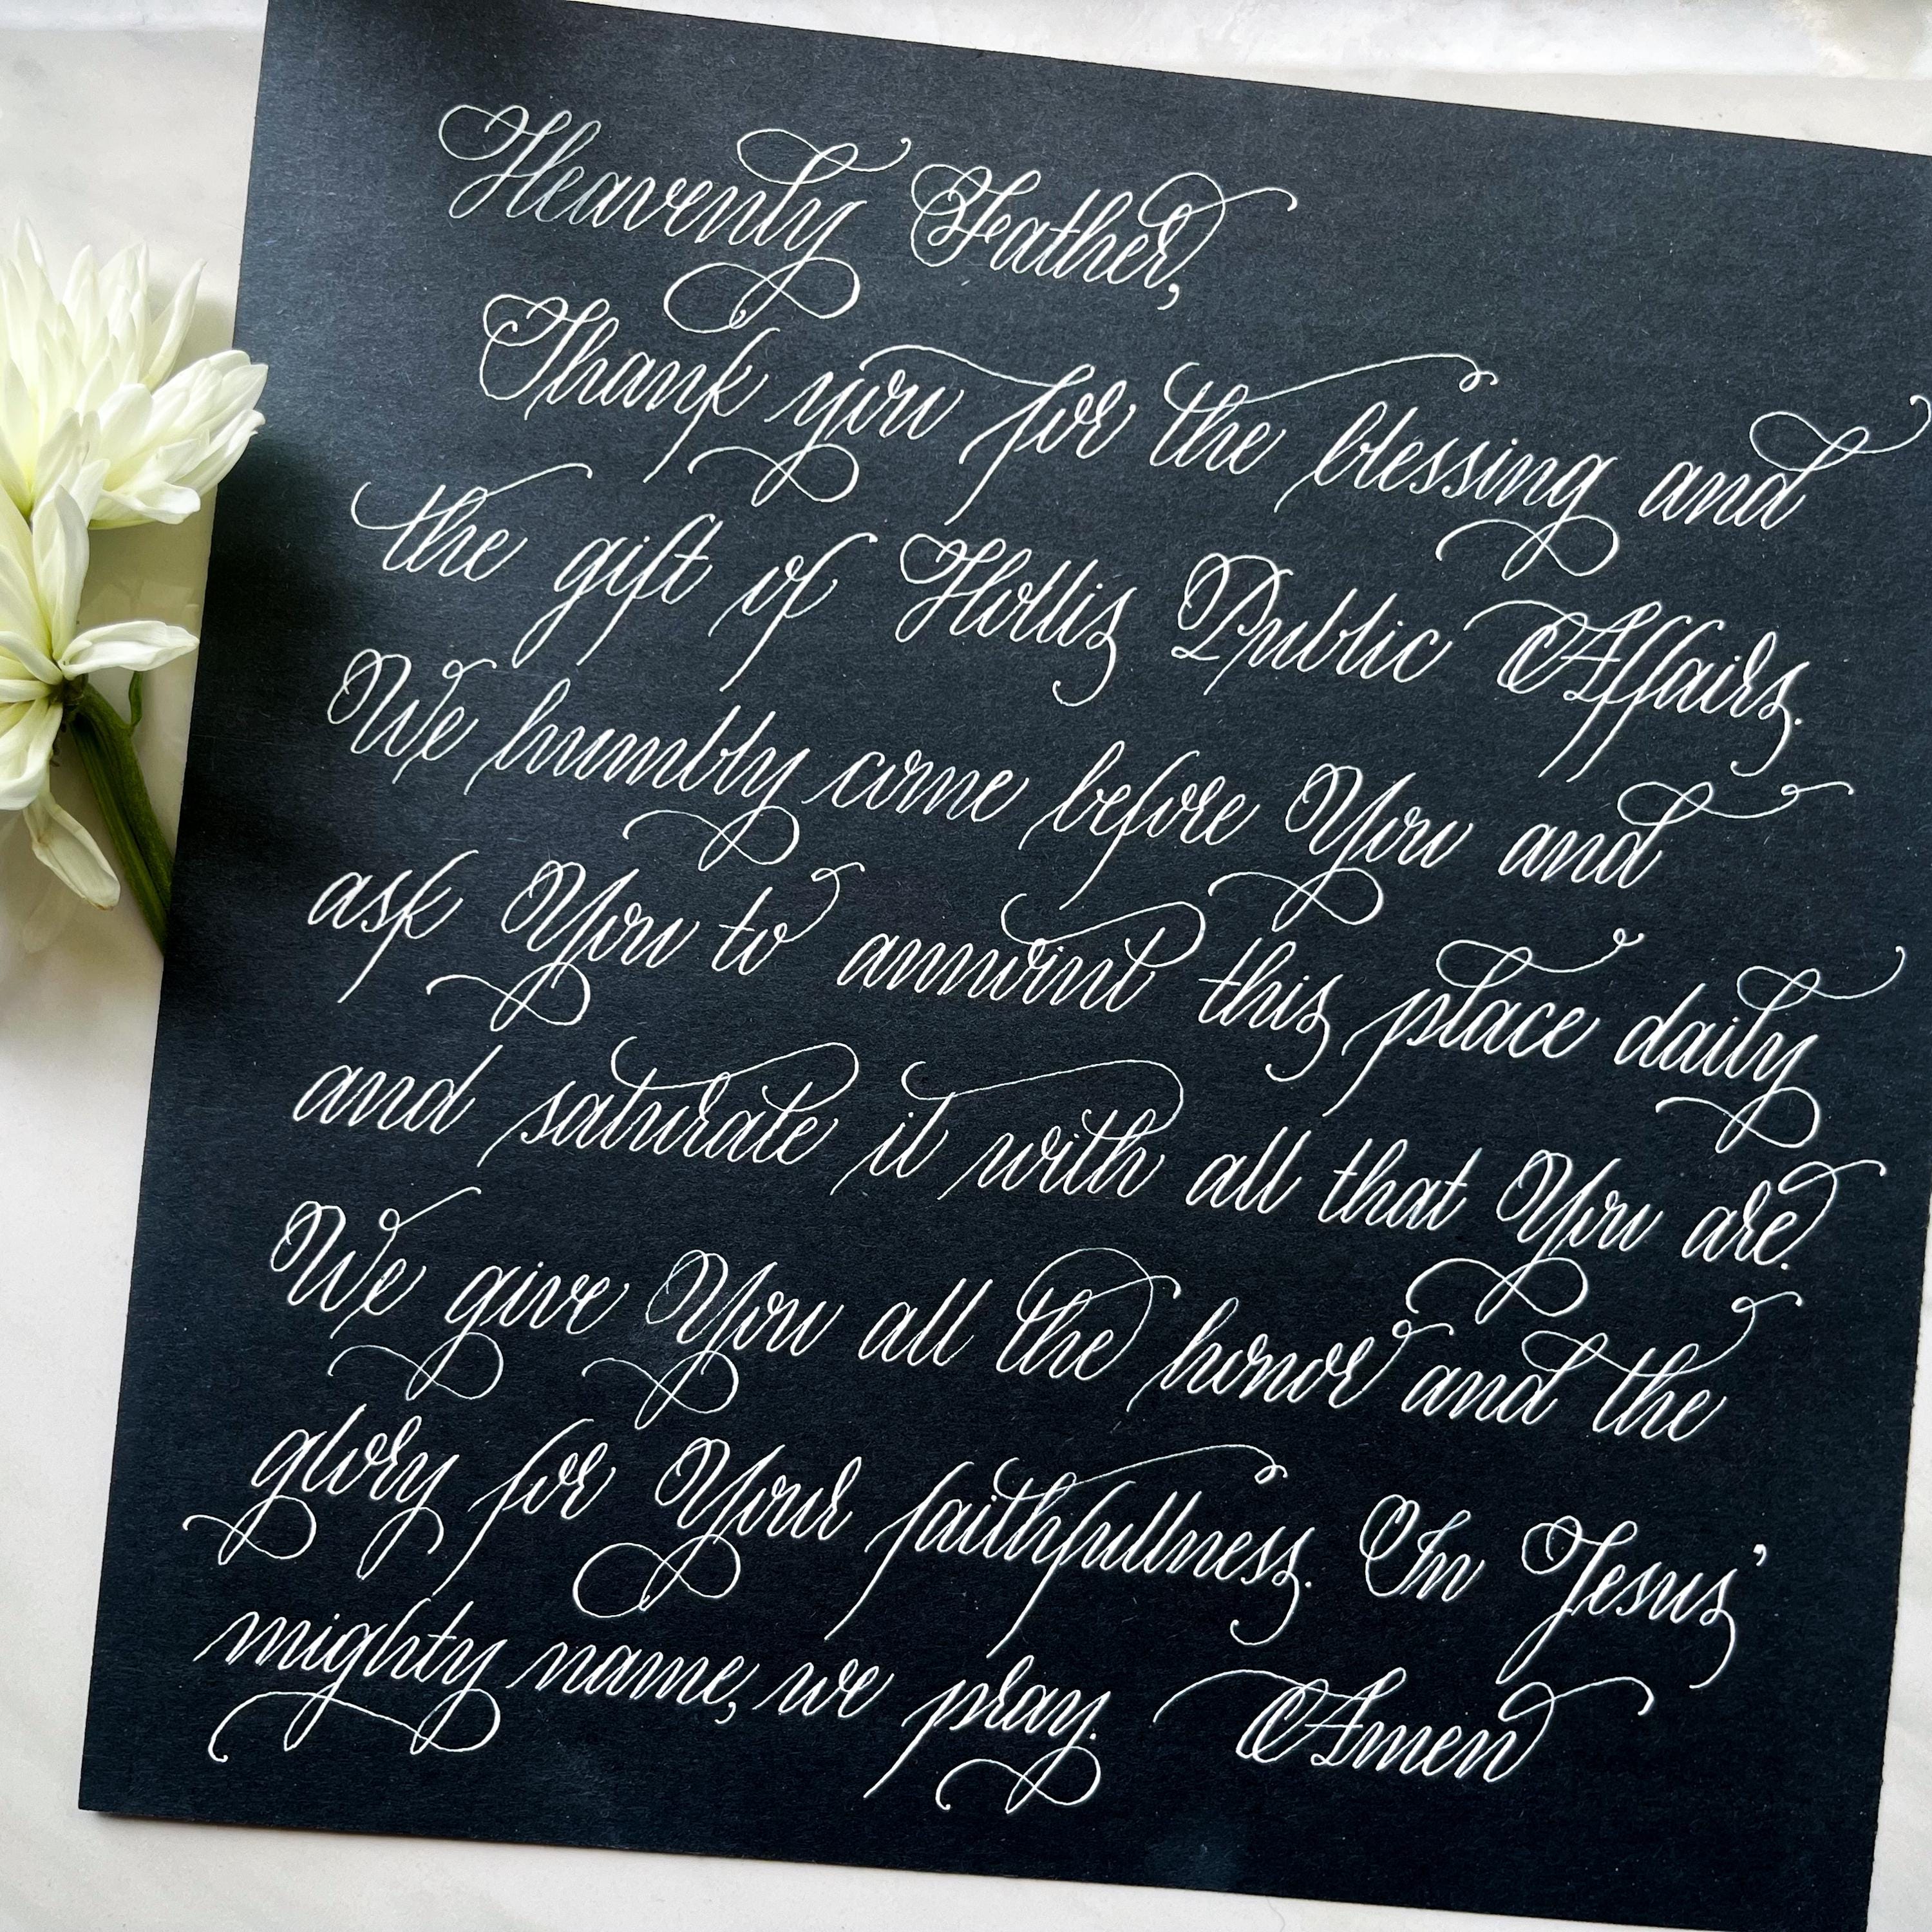 Heavenly Father,
Thank you for the blessing and
the gift of Hollis Public Affairs.
We humbly come before You and
ask You to annoint this place daily
and saturate it with all that You are.
We give You all the honor and the
glory for Your faithfullness. In Jesus'
mighty name, we pray. Amen